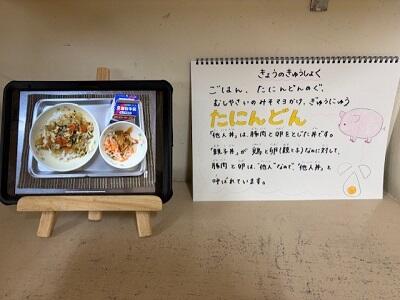 きょうのきゅうしょく
ごはん、たにんどんのぐ、
むしやさいのみそマヨかけ、ぎゅうにゅう
たにんどん
「他人丼」は、豚肉と卵をとじた丼です。
「親子丼」が 鶏と卵(親と子)なのに対して、
豚肉と卵は、"他人"なので、"他人丼"と
呼ばれています。